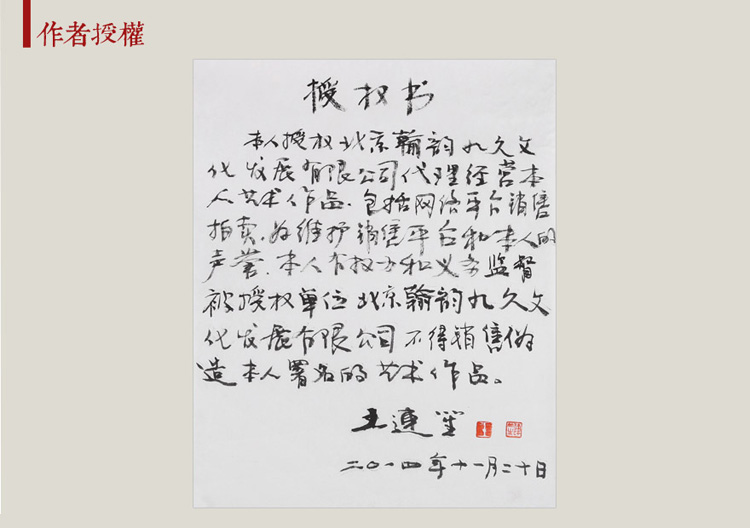 作者授權
授权书
本人授权北京翰韵九久文
化发展有限公司代理经营本
人艺术作品、包括网络平台销售
拍卖、为维护销售平台和本人的
声誉、本人有权力和义务监督
被授权单位北京翰韵九久文
化发展有限公司不得销售伪
造本人署名的艺术作品。
王连笙
二〇一四年十一月二十日